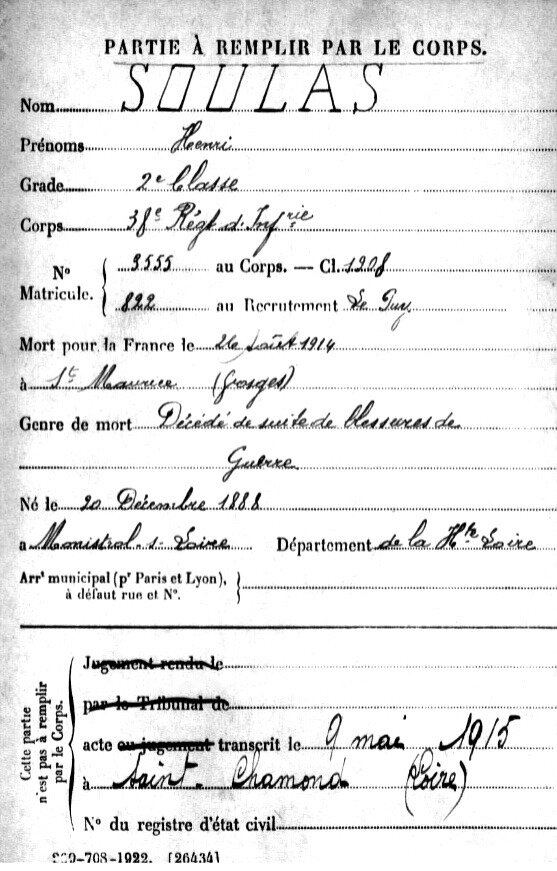 PARTIE À REMPLIR PAR LE CORPS.
Nom SOULAS
Prénoms Henri
Grade 2e Classe
Corps 38e Régt d'Infrie
No Matricule. { 3555 au Corps. — Cl. 1908
822 au Recrutement Le Puy
Mort pour la France le 26 août 1914
à St Maurice (Vosges)
Genre de mort Décédé de suite de blessures de
Guerre
Né le 20 Décembre 1888
a Monistrol-s-Loire Département de la Hte Loire
Arrt municipal (pr Paris et Lyon), }
à défaut rue et No.
Cette partie n'est pas à remplir par le Corps.
Jugement rendu le
par le Tribunal de
acte ou jugement transcrit le 9 mai 1915
à Saint-Chamond (Loire)
No du registre d'état civil
-708-1922. [26434]